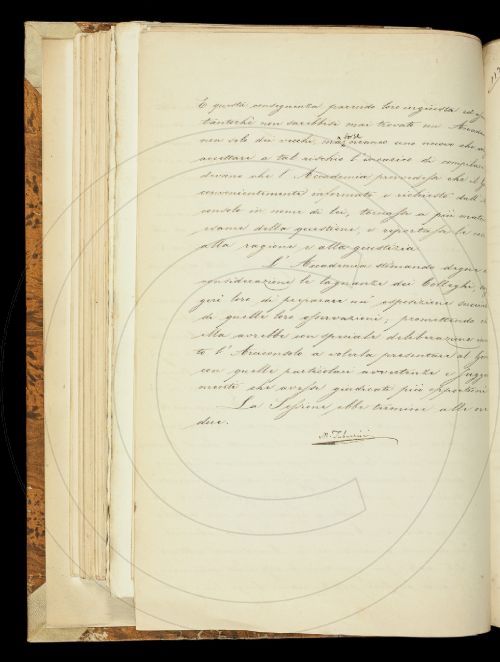 E questa conseguenza parendo loro ingiusta ed
tantochè non sarebbesi mai trovato un Accade
non solo dei vecchi, ma forse neanco uno nuovo che
accettare a tal rischio l'incarico di compilare
devano che l'Accademia provvedesse che il G
convenientemente informato e richiesto dall' A
consolo in nome di lei, tornasse a più matu
esame della questione, e riportasse le co
alla ragione e alla giustizia.
L'Accademia stimando degne
considerazione le lagnanze dei Colleghi
gai loro di preparare un' esposizione succin
di quelle loro osservazioni, promettendo
Ella avrebbe con speciale deliberazione in
to l'Arciconsolo a volerla presentare al Go
con quelle particolari avvertenze e sugge
menti che avesse giudicato più opportuni
La Sessione ebbe termine alle or
due.
M. Tabarrini
113